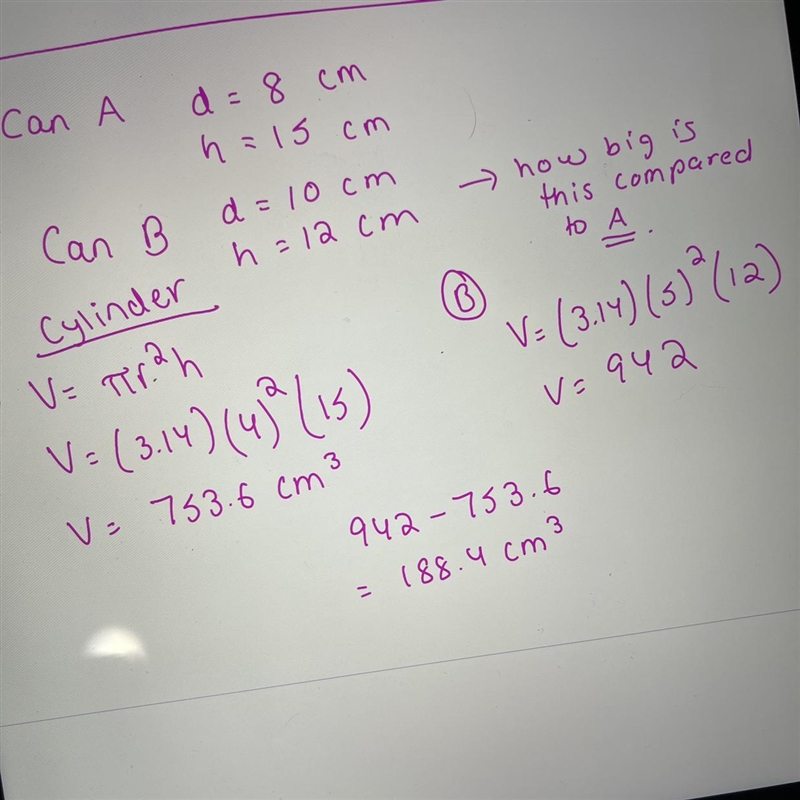 Can A d = 8 cm
h = 15 cm
Can B d = 10 cm
h = 12 cm
→ how big is
this compared
to A.
Cylinder
V = πr.²h
V = (3.14)(4)²(15)
V = 753.6 cm³
Ⓑ
V = (3.14)(5)²(12)
V = 942
942 - 753.6
= 188.4 cm³